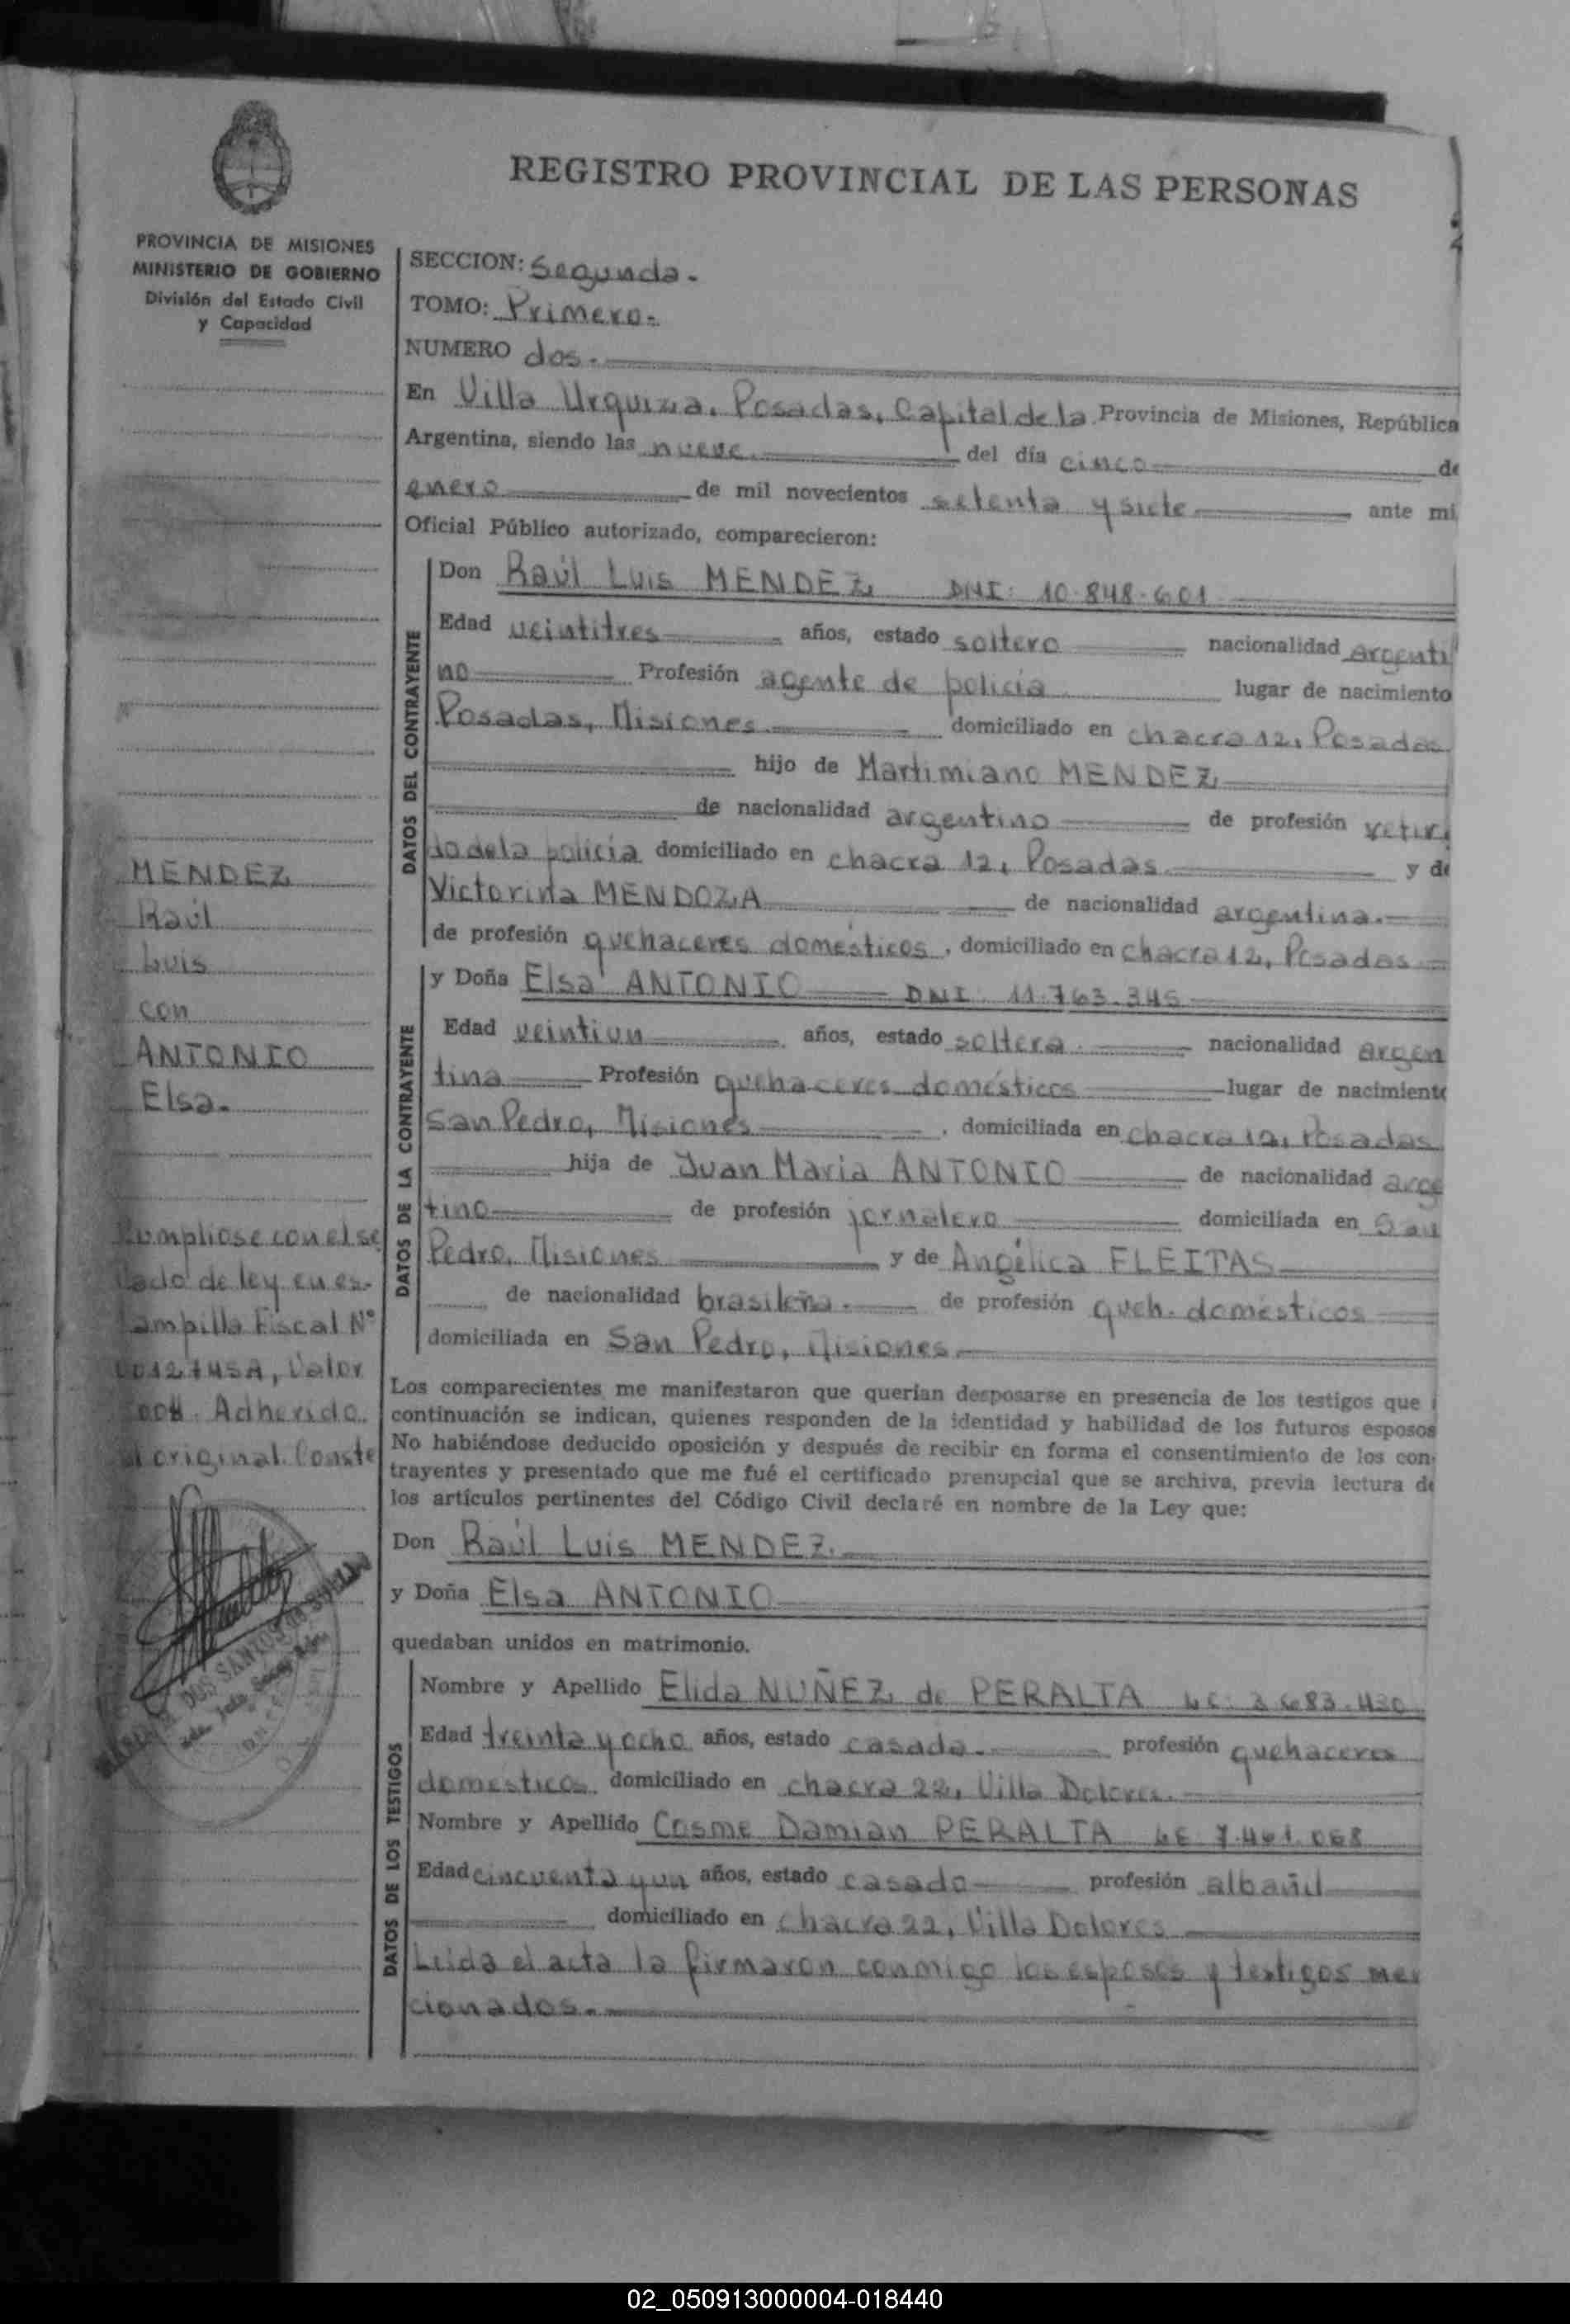 REGISTRO PROVINCIAL DE LAS PERSONAS
PROVINCIA DE MISIONES
MINISTERIO DE GOBIERNO
División del Estado Civil
y Capacidad
SECCION: Segunda.
TOMO: Primero.
NUMERO dos.
En Villa Urquiza, Posadas, Capital de la Provincia de Misiones, República
Argentina, siendo las nueve del día cinco de
enero de mil novecientos setenta y siete ante mi
Oficial Público autorizado, comparecieron:
DATOS DEL CONTRAYENTE
Don Raúl Luis MENDEZ DNI: 10.848.601
Edad veintitres años, estado soltero nacionalidad Argenti
no Profesión agente de policía lugar de nacimiento
Posadas, Misiones domiciliado en chacra 12, Posadas
hijo de Martimiano MENDEZ
de nacionalidad argentino de profesión retira
do de la policía domiciliado en chacra 12, Posadas y de
Victorina MENDOZA de nacionalidad argentina.
de profesión quehaceres domésticos, domiciliado en chacra 12, Posadas
DATOS DE LA CONTRAYENTE
y Doña Elsa ANTONIO DNI 11.763.345
Edad veintiun años, estado soltera nacionalidad argen
tina Profesión quehaceres domésticos lugar de nacimiento
San Pedro, Misiones, domiciliada en chacra 12, Posadas
hija de Juan Maria ANTONIO de nacionalidad arge
tino de profesión jornalero domiciliada en San
Pedro, Misiones y de Angélica FLEITAS
de nacionalidad brasileña. de profesión queh. domésticos
domiciliada en San Pedro, Misiones.
Los comparecientes me manifestaron que querían desposarse en presencia de los testigos que
continuación se indican, quienes responden de la identidad y habilidad de los futuros esposos
No habiéndose deducido oposición y después de recibir en forma el consentimiento de los con-
trayentes y presentado que me fué el certificado prenupcial que se archiva, previa lectura de
los artículos pertinentes del Código Civil declaré en nombre de la Ley que:
Don Raúl Luis MENDEZ.
y Doña Elsa ANTONIO
quedaban unidos en matrimonio.
DATOS DE LOS TESTIGOS
Nombre y Apellido Elida NUÑEZ de PERALTA LC. 3.683.430
Edad treinta y ocho años, estado casada. profesión quehaceres
domesticos domiciliado en chacra 22, Villa Dolores.
Nombre y Apellido Cosme Damian PERALTA LE 7.461.068
Edad cincuenta y un años, estado casado profesión albañil
domiciliado en chacra 22, Villa Dolores
Leida el acta la firmaron conmigo los esposos y testigos men
cionados.
MENDEZ
Raúl
Luis
con
ANTONIO
Elsa.
Cumpliose con el se
llado de ley en es-
tampilla Fiscal Nº
Valor
Adherido
original. Conste
DOS SANTOS
02_050913000004-018440